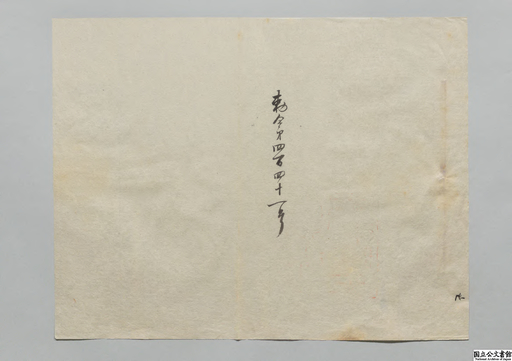 勅令第四百四十一号
国立公文書館
National Archives of Japan